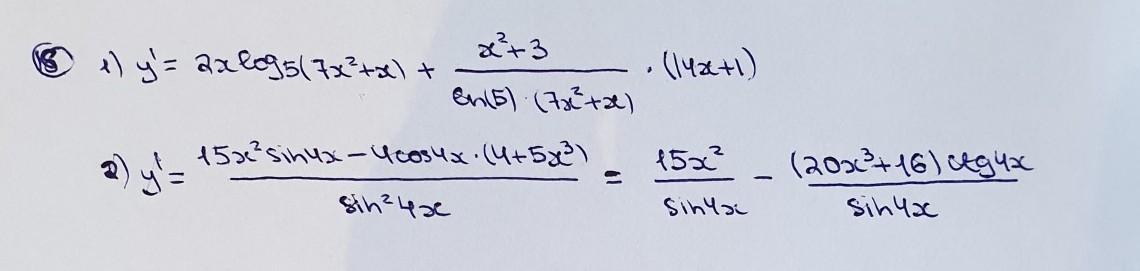 18 1) y' = 2x log₅(7x²+x) + (x²+3)/(ln(5)·(7x²+x)) · (14x+1)
2) y' = (15x² sin4x − 4cos4x·(4+5x³))/(sin²4x) = 15x²/sin4x − ((20x³+16)ctg4x)/sin4x